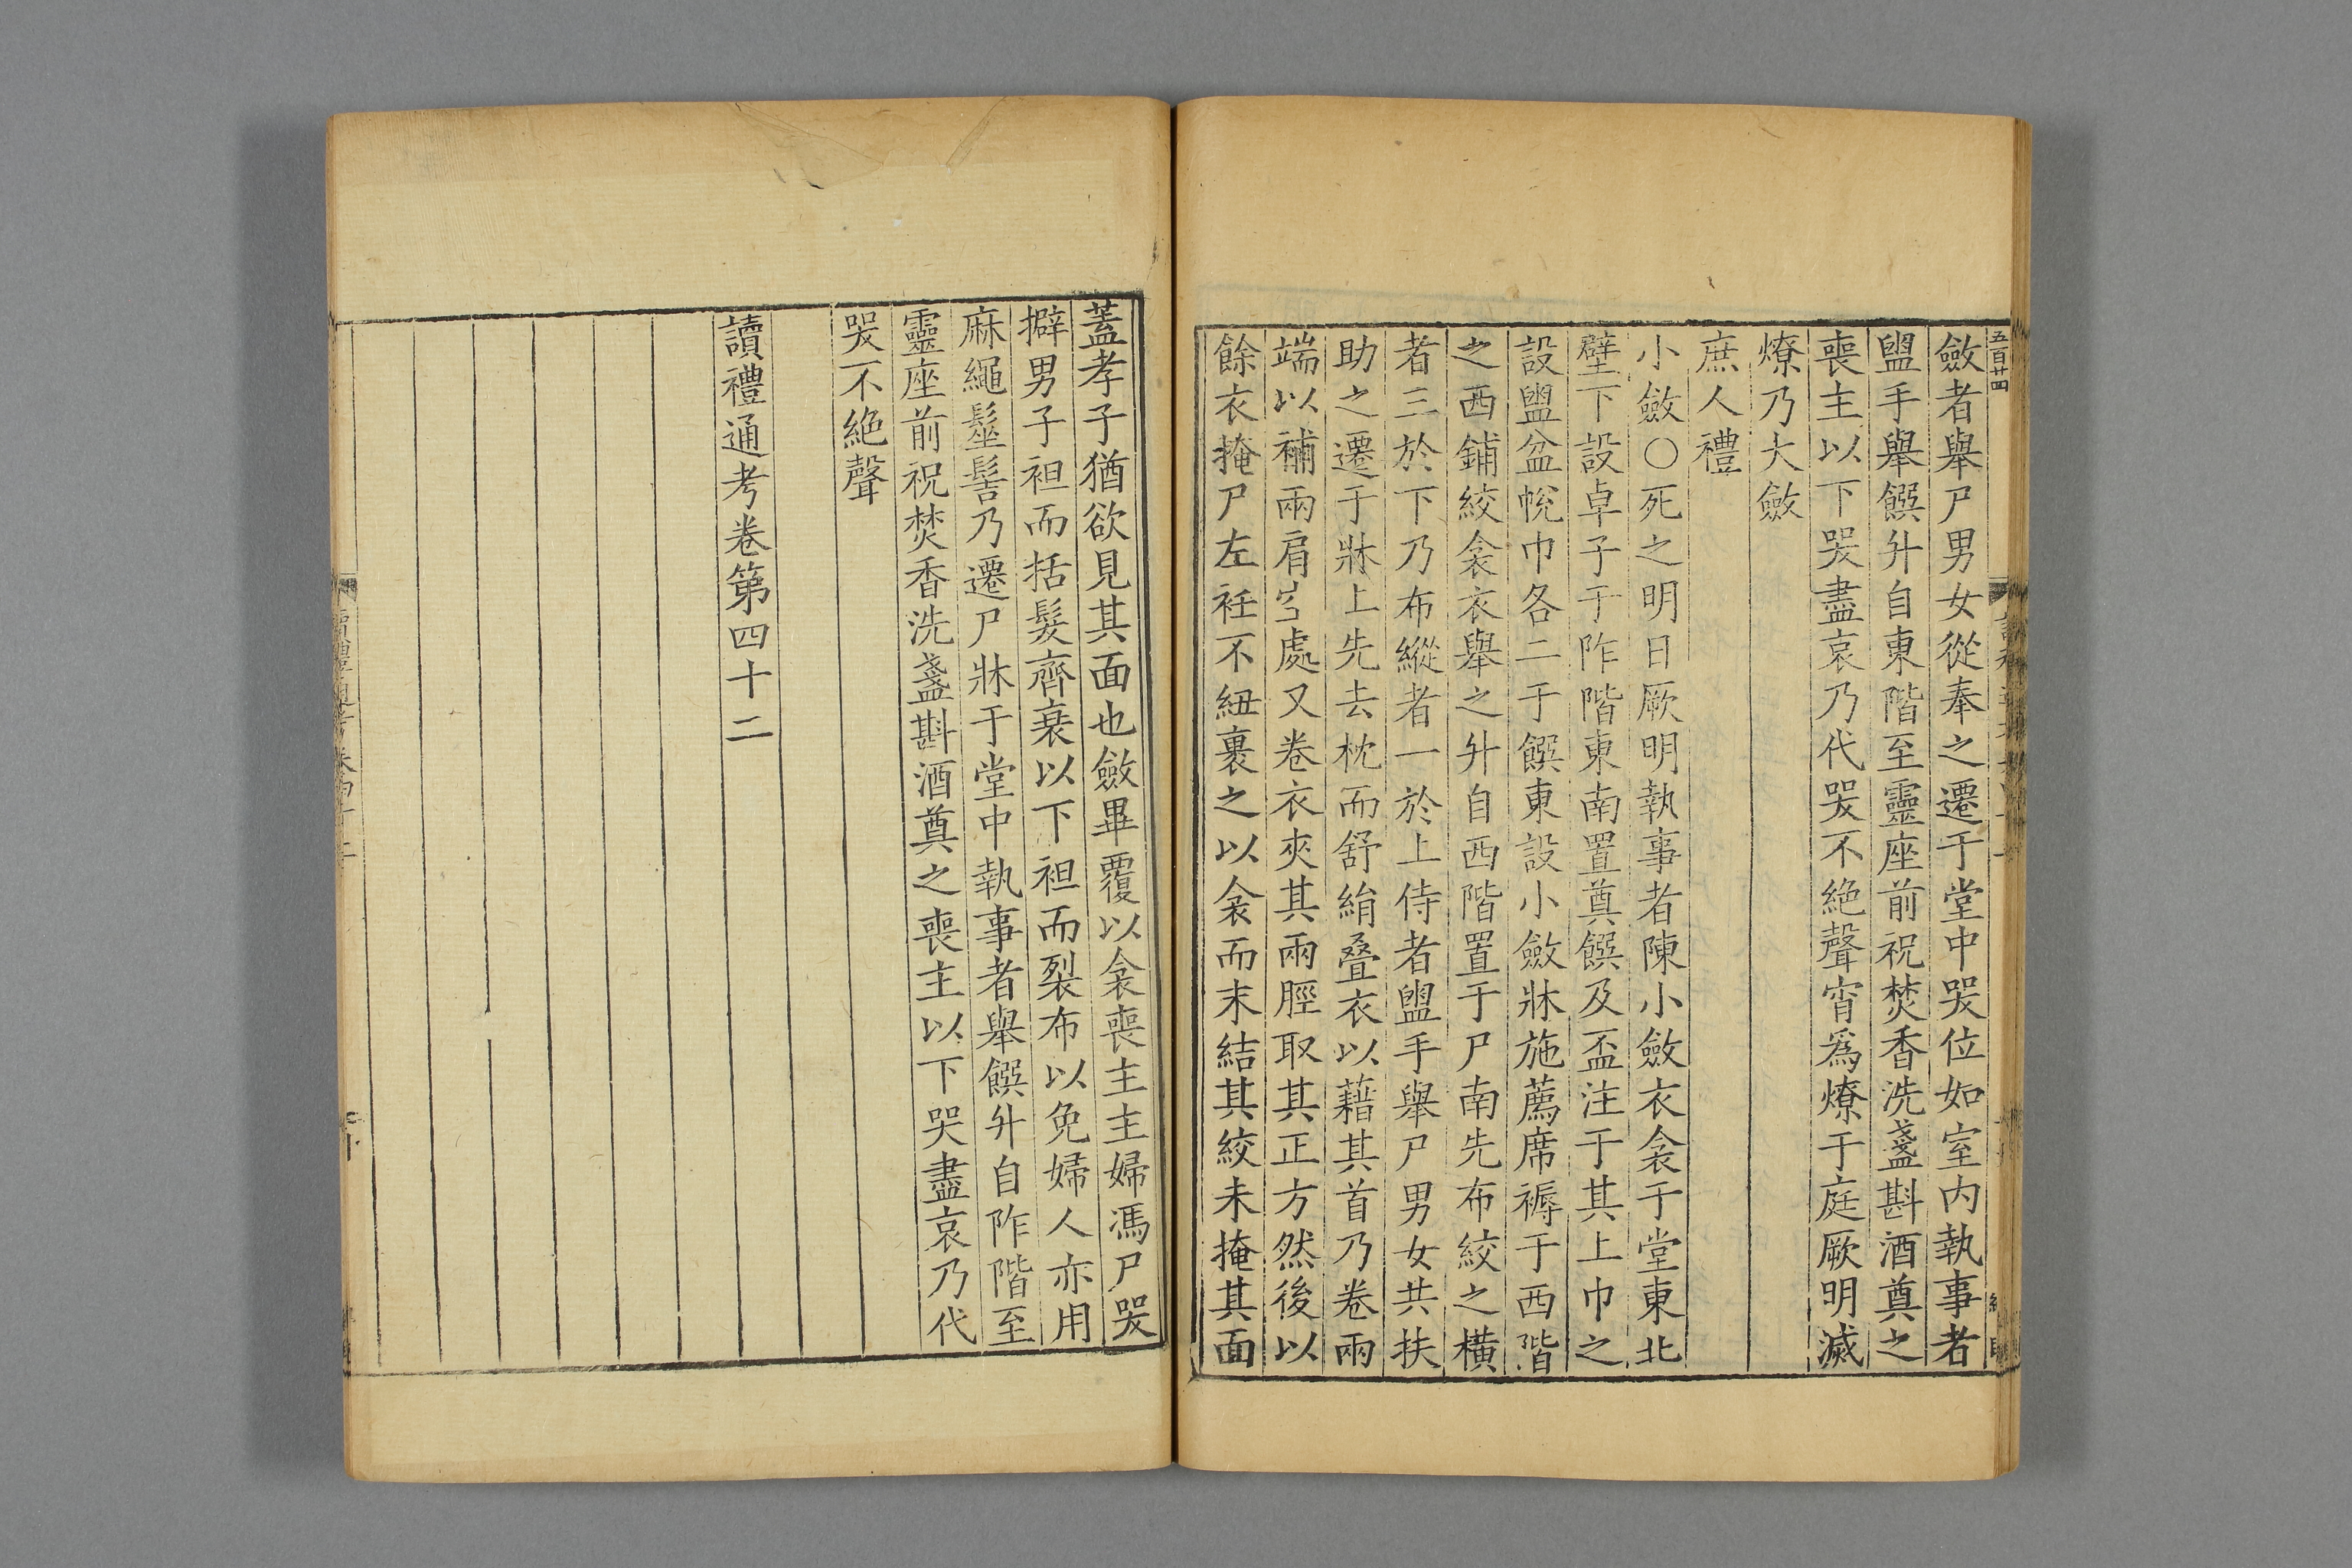 五百廿四
斂者舉尸男女從奉之遷于堂中哭位如室内執事者
盥手舉饌升自東階至靈座前祝焚香洗盞斟酒奠之
喪主以下哭盡哀乃代哭不絶聲宵爲燎于庭厥明滅
燎乃大斂
庶人禮
小斂○死之明日厥明執事者陳小斂衣衾于堂東北
壁下設卓子于阼階東南置奠饌及盃注于其上巾之
設盥盆帨巾各二于饌東設小斂牀施薦席褥于西階
之西鋪絞衾衣舉之升自西階置于尸南先布絞之横
者三於下乃布縱者一於上侍者盥手舉尸男女共扶
助之遷于牀上先去枕而舒絹疊衣以藉其首乃卷兩
端以補兩肩空處又卷衣夾其兩脛取其正方然後以
餘衣掩尸左衽不紐裹之以衾而未結其絞未掩其面
蓋孝子猶欲見其面也斂畢覆以衾喪主主婦馮尸哭
擗男子袒而括髮齊衰以下袒而裂布以免婦人亦用
麻繩髽髻乃遷尸牀于堂中執事者舉饌升自阼階至
靈座前祝焚香洗盞斟酒奠之喪主以下哭盡哀乃代
哭不絶聲
讀禮通考卷第四十二